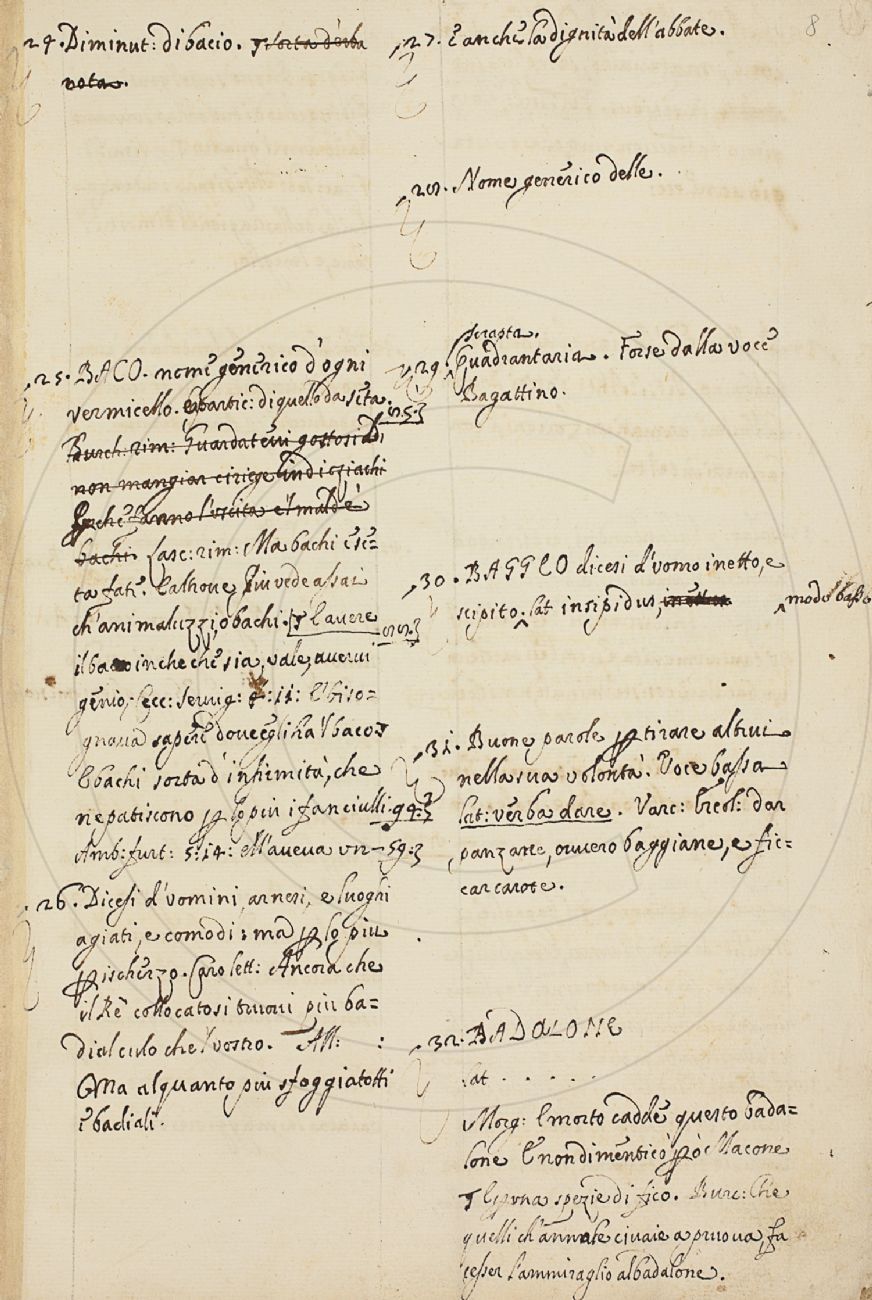 8
24. Diminut: di bacio. sorta d'erba
nota.
25. BACO. nome generico d'ogni
vermicello. E partic: di quello da seta.
Burch: rim: Guardatevi gottosi di
non mangiar ciriege
Perche fanno l'uscita e'l mal de
bachi. Lasc: rim: Ma bachi e se=
ta fate. Ealtrove più vede assai
ch'animaluzzi, o bachi. ¶ l avere
il baco in che che sia, vale, avervi
genio, Cecc: servig: 11: E biso=
gnava sapere dove egli ha l baco. ¶
E bachi sorta d'infirmità, che
ne patiscono per lo piu i fanciulli. 94:
Amb: furt: 5:14: E ll'aveva un 59:
26. Dicesi d'vomini, arnesi, e luoghi
agiati, e comodi: ma per lo piu
per ischerzo. Caro lett: Ancora che
il Rè collocatosi truovi piu ba=
dial culo che l vostro. All: :
Ma alquanto piu sfoggiatotti
e badiali.
27. E anche la dignità dell'abbate.
28. Nome generico delle.
scrapta.
29. Quadrantaria. Forse dalla voce
Bagattino.
30. BAGGEO dicesi d'vomo inetto, e
scipito. lat insipidus, inettus modo basso
31. Buone parole per tirare altrui
nella sua volontà. Voce bassa
lat: verba dare. Varc: Ercol: dar
panzane, ovvero baggiane, e fic=
car carote.
32. BADALONE
lat . . . . .
Morg: E morto cadde questo bada=
lone E non dimenticò però Macone
¶ E per una spezie di fico. Burc: Che
quelli ch'annale civaie a pruova, fa
cesser l'ammiraglio al badalone.